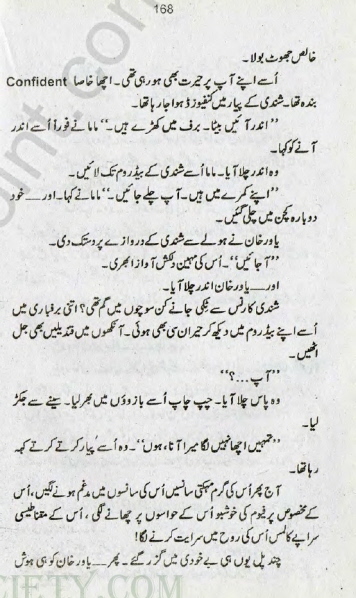 168
خالص جھوٹ بولا۔
اُسے اپنے آپ پر حیرت بھی ہو رہی تھی۔ اچھا خاصا Confident
بندہ تھا۔ شندی کے پیار میں کنفیوزڈ ہوا جا رہا تھا۔
’’اندر آئیں بیٹا۔ برف میں کھڑے ہیں۔‘‘ ماما نے فوراً اُسے اندر
آنے کو کہا۔
وہ اندر چلا آیا۔ ماما اُسے شندی کے بیڈ روم تک لائیں۔
’’اپنے کمرے میں ہیں۔ آپ چلے جائیں۔‘‘ ماما نے کہا۔ اور...... خود
دوبارہ کچن میں چلی گئیں۔
یاور خان نے ہولے سے شندی کے دروازے پر دستک دی۔
’’آ جائیں‘‘۔ اُس کی مہین دلکش آواز ابھری۔
اور...... یاور خان اندر چلا آیا۔
شندی کارنس سے ٹکی جانے کن سوچوں میں گم تھی؟ اتنی برفباری میں
اُسے اپنے بیڈ روم میں دیکھ کر حیران سی بھی ہوئی۔ آنکھوں میں قندیلیں بھی جل
اٹھیں۔
’’آپ...؟‘‘
وہ پاس چلا آیا۔ چپ چاپ اُسے بازوؤں میں بھر لیا۔ سینے سے جکڑ
لیا۔
’’تمہیں اچھا نہیں لگا میرا آنا، ہوں‘‘۔ وہ اُسے پیار کرتے کرتے کہہ
رہا تھا۔
آج پھر اُس کی گرم مہکتی سانسیں اُس کی سانسوں میں مدغم ہونے لگیں، اُس
کے مخصوص پرفیوم کی خوشبو اُس کے حواسوں پر چھانے لگی، اُس کے مقناطیسی
سراپے کا لمس اُس کی روح میں سرایت کرنے لگا!
چند پل یوں ہی بے خودی میں گزر گئے۔ پھر...... یاور خان کو ہی ہوش
CIETY.COM